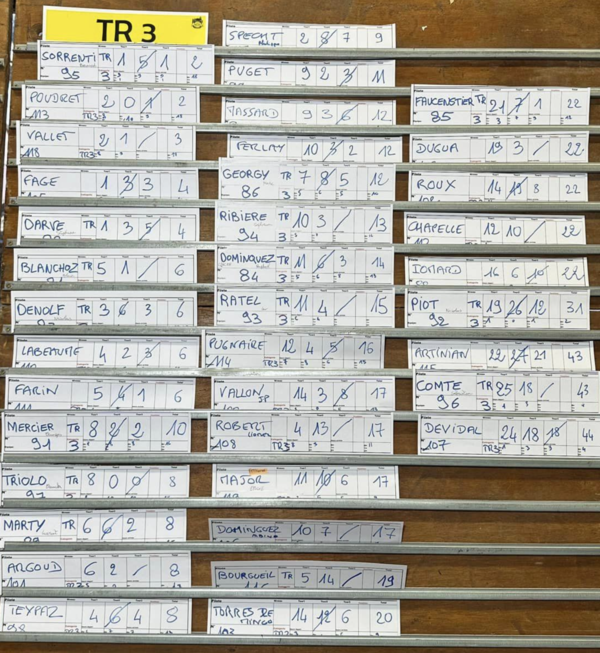 TR 3
SORRENTI TR 1 5 1 2
95 3
POUDRET 2 0 1 2
113
VALLET 2 1 / 3
118 TR3
FAGE 1 3 3 4
DARVE TR 1 3 5 4
BLANCHOZ TR 5 1 / 6
DENOLF TR 3 6 3 6
LABEAUME 4 2 3 6
FARIN 5 4 1 6
MERCIER TR 8 2 2 10
91 3
TRIOLO TR 8 0 0 8
97
MARTY TR 6 6 2 8
ARGOUD 6 2 / 8
101
TEYPAZ 4 6 4 8
98
SPECHT 2 8 7 9
PUGET 9 2 3 11
TASSARD 9 3 6 12
FERLAY 10 3 2 12
GEORGY TR 7 8 5 12
86 3
RIBIERE TR 10 3 / 13
94 3
DOMINQUEZ TR 11 6 3 14
84 3
RATEL TR 11 4 / 15
93 3
PUGNAIRE 12 4 5 16
114 TR3
VALLON JP 14 3 8 17
ROBERT 4 13 / 17
108 TR3
MAJOR 11 10 6 17
DOMINGUEZ 10 7 / 17
BOURGUEIL TR 5 14 / 19
TORRES DE MINGO 14 12 6 20
FAUCENSTIER TR 21 7 1 22
85 3
DUGUA 19 3 / 22
ROUX 14 19 8 22
CHAPELLE 12 10 / 22
16 6 10 22
PIOT TR 19 26 12 31
92 3
ARTINIAN 22 27 21 43
COMTE TR 25 18 / 43
96 3
DEVIDAL 24 18 18 / 44
107 TR3